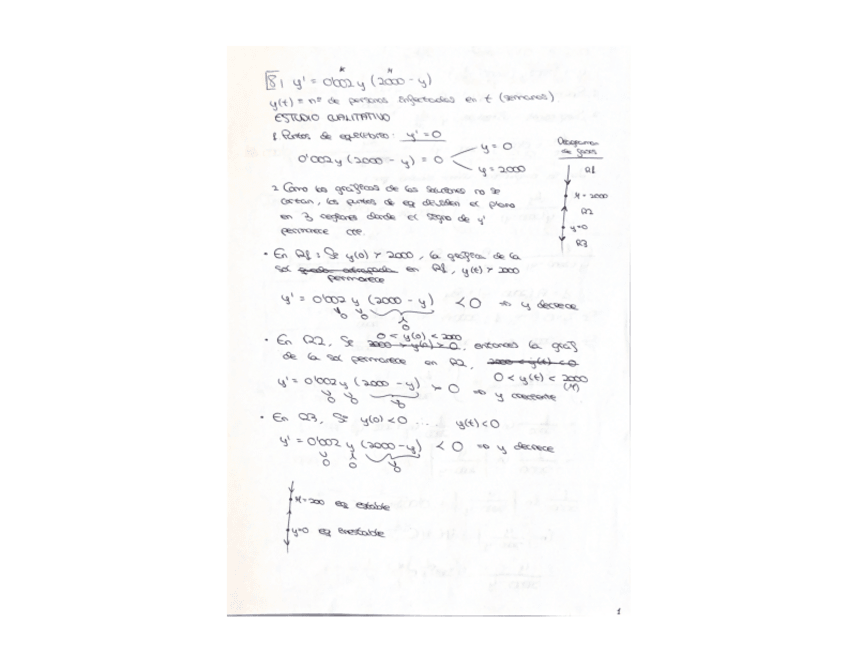 8| y' = 0'002 y (2000 - y)
y(t) = nº de personas infectadas en t (semanas)
ESTUDIO CUALITATIVO
1 Puntos de equilibrio: y' = 0
0'002y (2000 - y) = 0
y = 0
y = 2000
Diagrama de fases
R1
M = 2000
R2
y=0
R3
2 Como las gráficas de las soluciones no se
cortan, los puntos de eq dividen el plano
en 3 regiones donde el signo de y'
permanece cte.
• En R1: Si y(0) > 2000, la gráfica de la
sol permanece en R1, y(t) > 2000
y' = 0'002 y (2000 - y) < 0 ⇒ y decrece
• En R2, Si 0 < y(0) < 2000, entonces la gráf
de la sol permanece en R2,
0 < y(t) < 2000
(M)
y' = 0'002y (2000 - y) > 0 ⇒ y creciente
• En R3, Si y(0) < 0 ... y(t) < 0
y' = 0'002 y (2000-y) < 0 ⇒ y decrece
M=200 eq estable
y=0 eq inestable
1